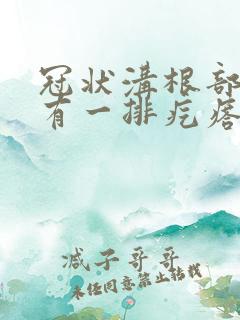 冠状溝根部
有一排疙瘩
减子哥哥
未任同意禁止转载